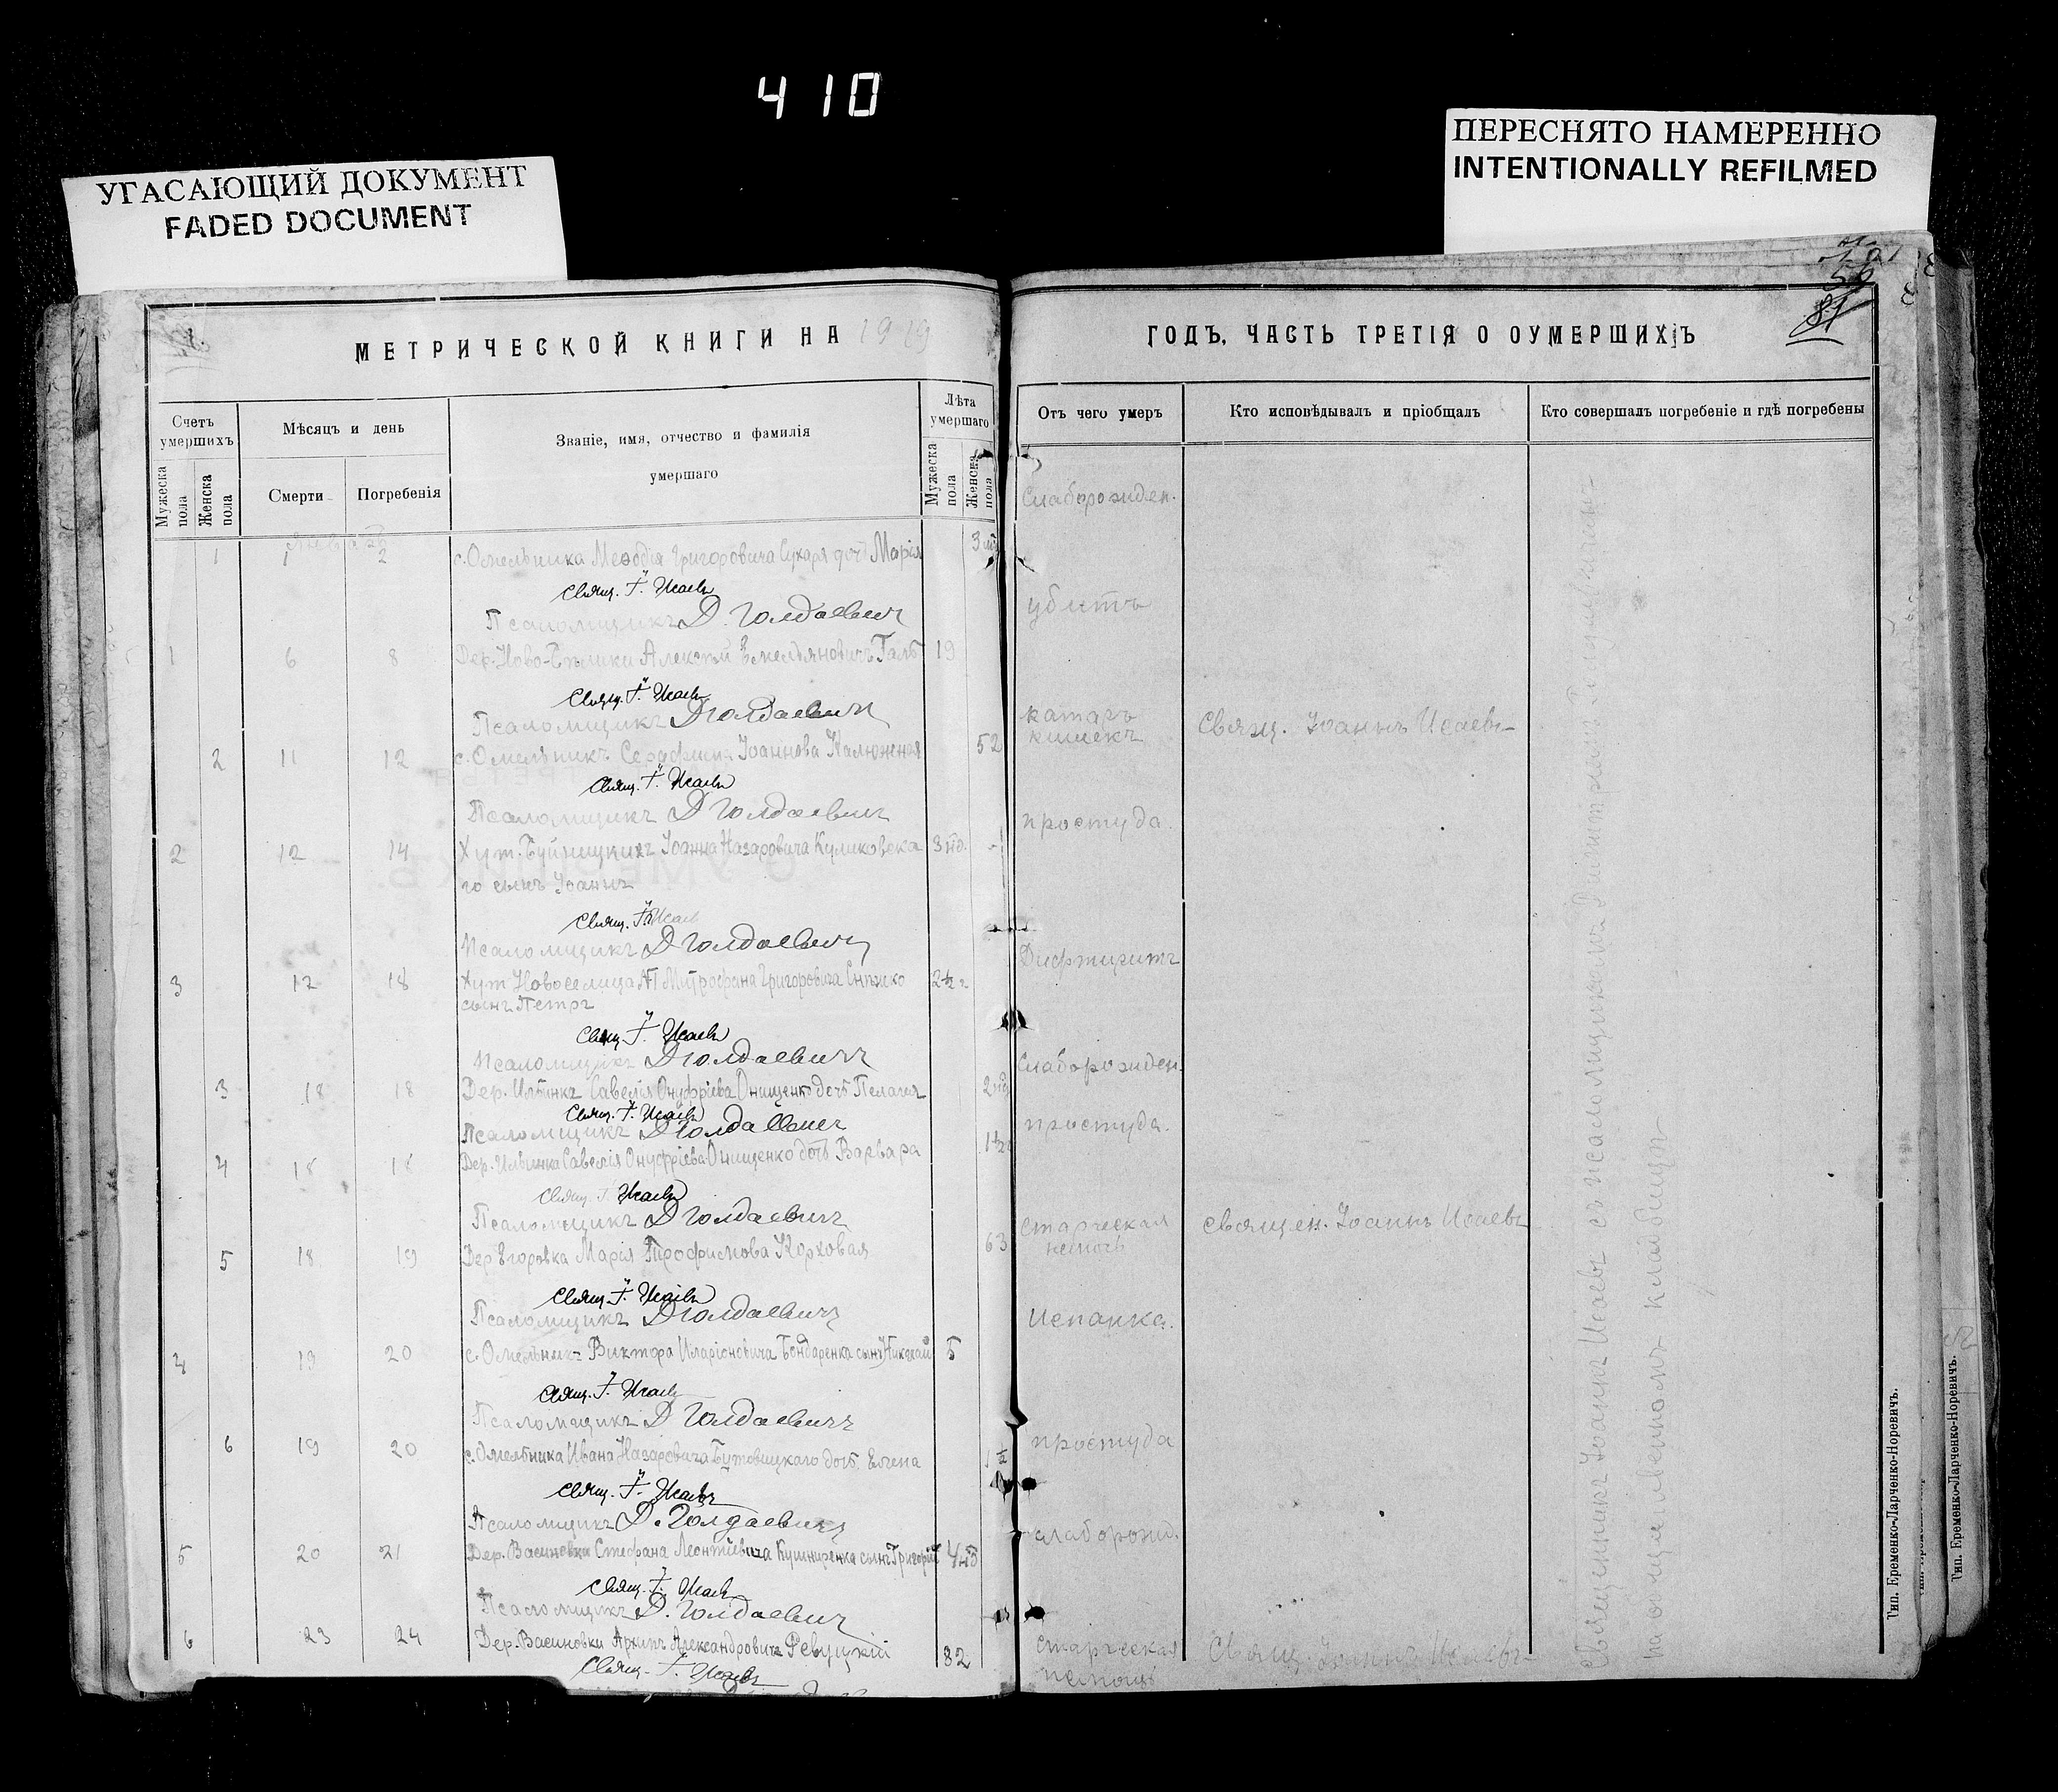 410
УГАСАЮЩИЙ ДОКУМЕНТ
FADED DOCUMENT
ПЕРЕСНЯТО НАМЕРЕННО
INTENTIONALLY REFILMED
56
81
МЕТРИЧЕСКОЙ КНИГИ НА 1919
ГОДЪ, ЧАСТЬ ТРЕТІЯ О ОУМЕРШИХЪ
Счетъ умершихъ
Мужеска пола
Женска пола
Мѣсяцъ и день
Смерти
Погребенія
Званіе, имя, отчество и фамилія
умершаго
Лѣта умершаго
Мужеска пола
Женска пола
Отъ чего умеръ
Кто исповѣдывалъ и пріобщалъ
Кто совершалъ погребеніе и гдѣ погребены
1 1 2 с. Омельника Меѳодія Григоровича Сухаря доч Марія 3 Слаборожден.
Свящ. І. Исаевъ
Псаломщикъ Д. Голдаевич
1 6 8 Дер. Ново- Алексѣй Емельяновичъ 19 убитъ
Свящ. І. Исаевъ
Псаломщикъ Д Голдаевич
2 11 12 с. Омельникъ Серафима Іоаннова Калюжная 52 катаръ кишекъ Свящ. Іоаннъ Исаевъ
Свящ. І. Исаевъ
Псаломщикъ Д Голдаевич
2 12 14 Хут. Буйницкихъ Іоанна Назаровича Куликовска 3 нд. простуда.
го сынъ Іоаннъ
Свящ. І. Исаев
Псаломщикъ Д Голдаевич
3 12 18 Хут Новоселица Митрофана Григоровича 2½ Дифтиритъ
сынъ Петръ
Свящ І. Исаевъ
Псаломщикъ Д Голдаевич
3 18 18 Дер. Ильинка Савелія Онуфріева Онищенко дочь Пелагея 2 нд Слаборожден.
Свящ. І. Исаевъ
Псаломщикъ Д Голдаевич
4 18 18 Дер. Ильинка Савелія Онуфріева Онищенко дочь Варвара 1½ простуда.
Свящ. І Исаевъ
Псаломщикъ Д Голдаевич
5 18 19 Дер Егоровка Марія Трофимова Корховая 63 старческая немощь Священ. Іоаннъ Исаевъ
Свящ. І. Исаевъ
Псаломщикъ Д Голдаевич
4 19 20 с. Омельникъ Виктора Иларіоновича Бондаренка сынъ Николай 5 Испанка.
Свящ. І. Исаевъ
Псаломщикъ Д Голдаевич
6 19 20 с. Омельника Ивана Назаровича Бутовицкаго дочь Елена 1½ простуда
Свящ. І. Исаевъ
Псаломщикъ Д. Голдаевич
5 20 21 Дер. Васиновки Стефана Леонтіевича Кушниренка сынъ Григорій слаборожд.
Свящ. І. Исаевъ
Псаломщикъ Д. Голдаевич
6 23 24 Дер. Васиновки Архипъ Александровичъ Ревуцкій 82 старческая немощь Свящ. Іоаннъ Исаевъ
Свящ. І. Исаевъ
Священникъ Іоаннъ Исаевъ съ псаломщикомъ
на кладбищѣ
Тип. Еременко-Ларченко-Норевичъ.
Тип. Еременко-Ларченко-Норевичъ.